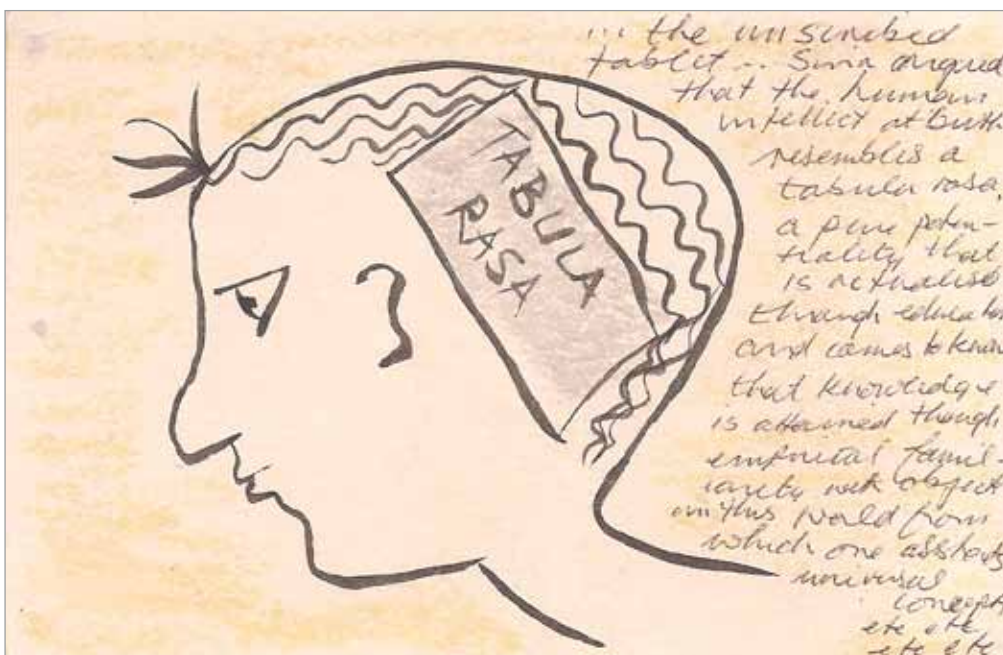 TABULA
RASA
... the unscribed
tablet ... Sina argued
that the human
intellect at birth
resembles a
tabula rasa,
a pure poten-
tiality that
is actualised
through education
and comes to know
that knowledge
is attained though
empirical famil-
iarity with objects
in this world from
which one abstracts
universal
concepts
etc etc
etc etc